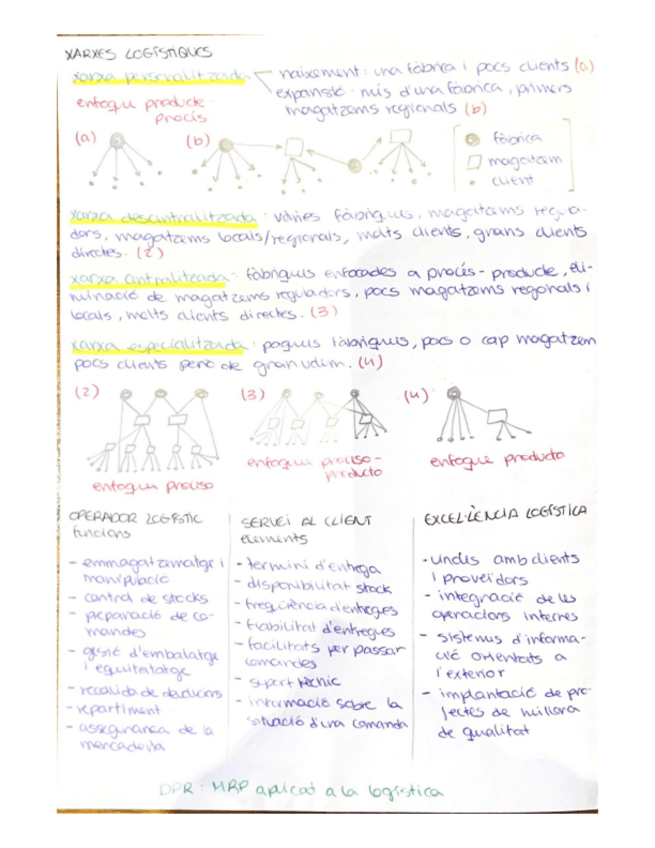 XARXES LOGÍSTIQUES
xarxa personalitzada
naixement: una fàbrica i pocs clients (a)
expansió: més d'una fàbrica, primers
magatzems regionals (b)
enfoque producte-
procés
(a)
(b)
fàbrica
magatzem
client
xarxa descentralitzada: vàries fàbriques, magatzems regula-
dors, magatzems locals/regionals, molts clients, grans clients
directes. (2)
xarxa centralitzada: fàbriques enfocades a procés-producte, eli-
minació de magatzems reguladors, pocs magatzems regionals i
locals, molts clients directes. (3)
xarxa especialitzada: poques fàbriques, pocs o cap magatzem
pocs clients però de gran volum. (4)
(2)
(3)
(4)
enfoque proceso
enfoque proceso-
producto
enfoque producto
OPERADOR LOGÍSTIC
funcions
- emmagatzematge i
manipulació
- control de stocks
- preparació de co-
mandes
- gestió d'embalatge
i etiquetatge
- recollida de devolucions
- repartiment
- assegurança de la
mercaderia
SERVEI AL CLIENT
elements
- termini d'entrega
- disponibilitat stock
- freqüència d'entregues
- fiabilitat d'entregues
- facilitats per passar
comandes
- suport tècnic
- informació sobre la
situació d'una comanda
EXCEL·LÈNCIA LOGÍSTICA
- vincles amb clients
i proveïdors
- integració de les
operacions internes
- sistemes d'informa-
ció orientats a
l'exterior
- implantació de pro-
jectes de millora
de qualitat
DPR: MRP aplicat a la logística